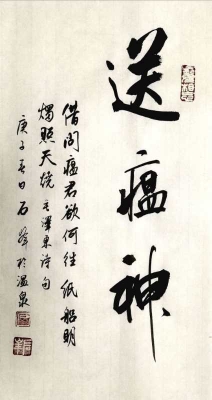 送瘟神
借问瘟君欲何往纸船明
烛照天烧毛泽东诗句
庚子春日石峰於温泉